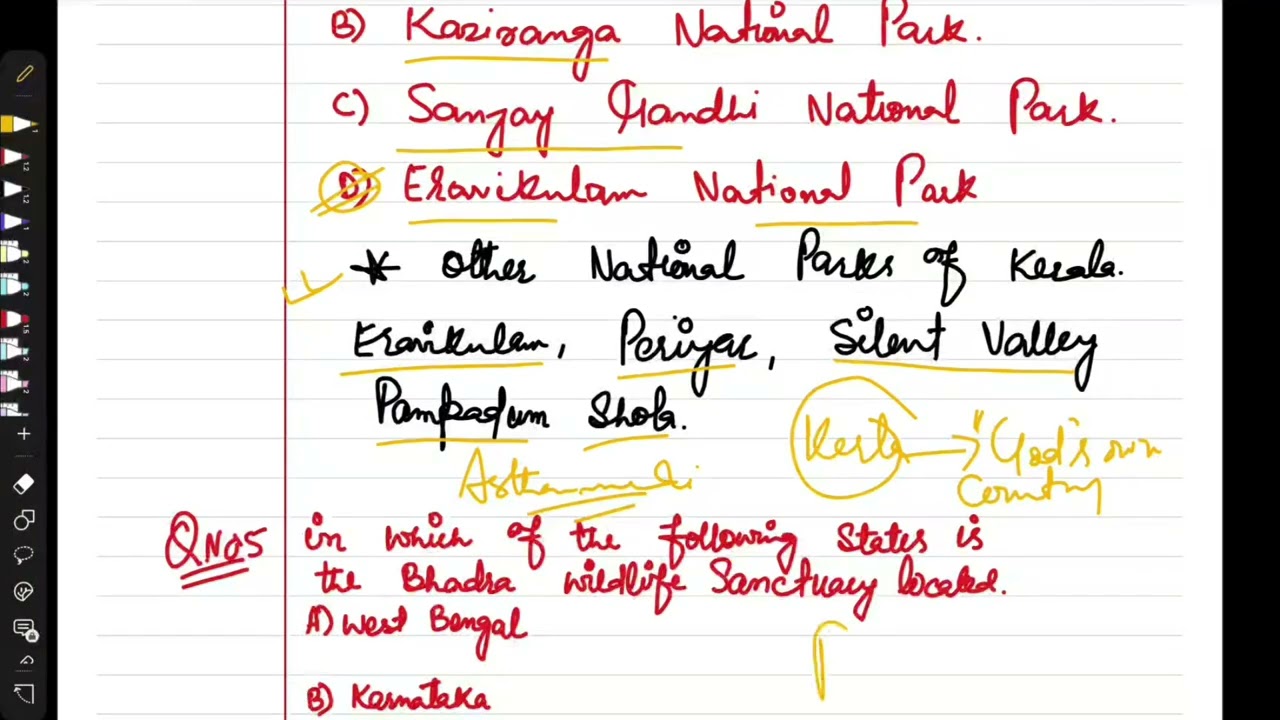 B) Kaziranga National Park.
C) Sanjay Gandhi National Park.
D) Eravikulam National Park
* Other National Parks of Kerala.
Eravikulam, Periyar, Silent Valley
Pampadum Shola.
Kerla → "God's own
Country
Asthamudi
Q NO5 in which of the following States is
the Bhadra wildlife Sanctuary located.
A) West Bengal
B) Karnataka